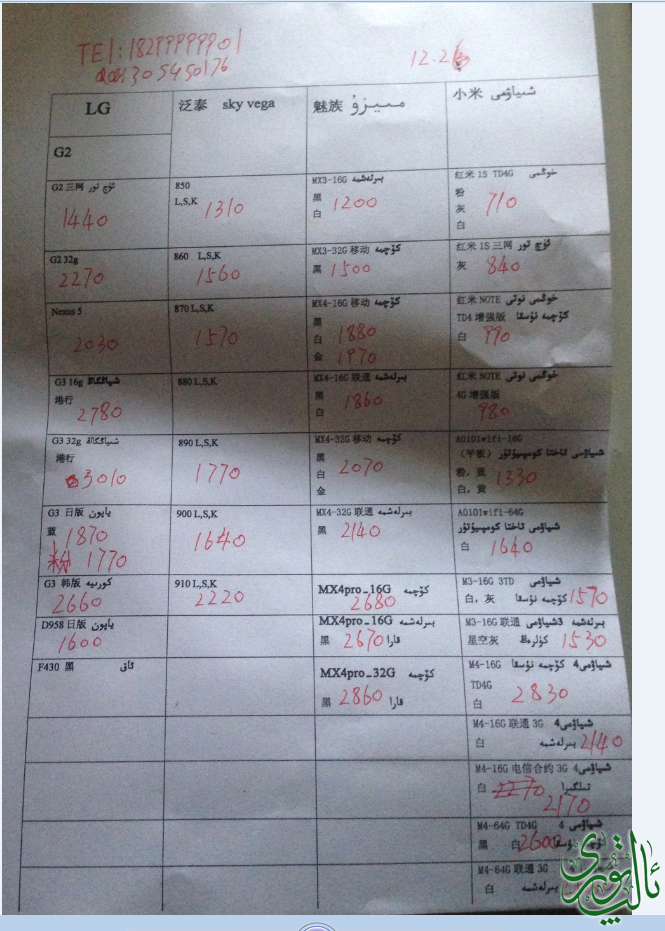 TEl:18299999901
QQ:305450176
12.26
LG
泛泰 sky vega
魅族 مىيزۇ
小米 شىياۋمى
G2
G2 三网 ئۈچ تور
1440
850
L,S,K 1310
MX3-16G بىرلەشمە
黑 1200
白
红米 1S TD4G خوڭمى
粉 710
灰
白
G2 32g
2270
860 L,S,K
1560
MX3-32G 移动 كۆچمە
黑 1500
红米 1S 三网 ئۈچ تور
灰 840
Nexus 5
2030
870 L,S,K
1570
MX4-16G 移动 كۆچمە
黑
白 1880
金 1970
红米 NOTE خوڭمى نوتى
TD4 增强版 كۆچمە نۇسقا
白 990
G3 16g شىياڭگاڭ
港行
2780
880 L,S,K
MX4-16G 联通 بىرلەشمە
黑 1860
白
红米 NOTE خوڭمى نوتى
4G 增强版
980
G3 32g شىياڭگاڭ
港行
3010
890 L,S,K
1770
MX4-32G 移动 كۆچمە
黑
白 2070
金
A0101wifi-16G
（平板） شىياۋمى تاختا كومپىيۇتۇر
粉，蓝 1330
白，黄
G3 日版 ياپون
蓝 1870
粉 1770
900 L,S,K
1640
MX4-32G 联通 بىرلەشمە
黑 2140
A0101wifi-64G
شىياۋمى تاختا كومپىيۇتۇر
白 1640
G3 韩版 كورىيە
2660
910 L,S,K
2220
MX4pro-16G كۆچمە
2680
M3-16G 3TD شىياۋمى
白，灰 كۆچمە نۇسقا 1570
D958 日版 ياپون
1600
MX4pro-16G بىرلەشمە
黑 2670 قارا
M3-16G 联通 شىياۋمى3 بىرلەشمە
星空灰 كۈلرەڭ 1530
F430 黑 ئاق
MX4pro-32G كۆچمە
黑 2860 قارا
M4-16G شىياۋمى4 كۆچمە نۇسقا
TD4G
白 2830
M4-16G 联通 3G شىياۋمى4
白 بىرلەشمە 2140
M4-16G 电信合约 3G شىياۋمى4
白 2270 تىلگىرا
2170
M4-64G TD4G شىياۋمى 4
黑 白 2600
M4-64G 联通 3G
白 بىرلەشمە